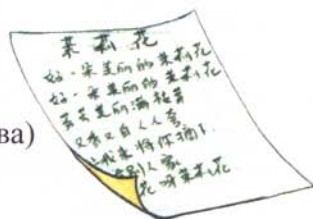 茉莉花
好一朵美丽的茉莉花
好一朵美丽的茉莉花
芬芳美丽满枝芽
又香又白人人夸
我来将你摘下
别人家
花呀茉莉花
ва)